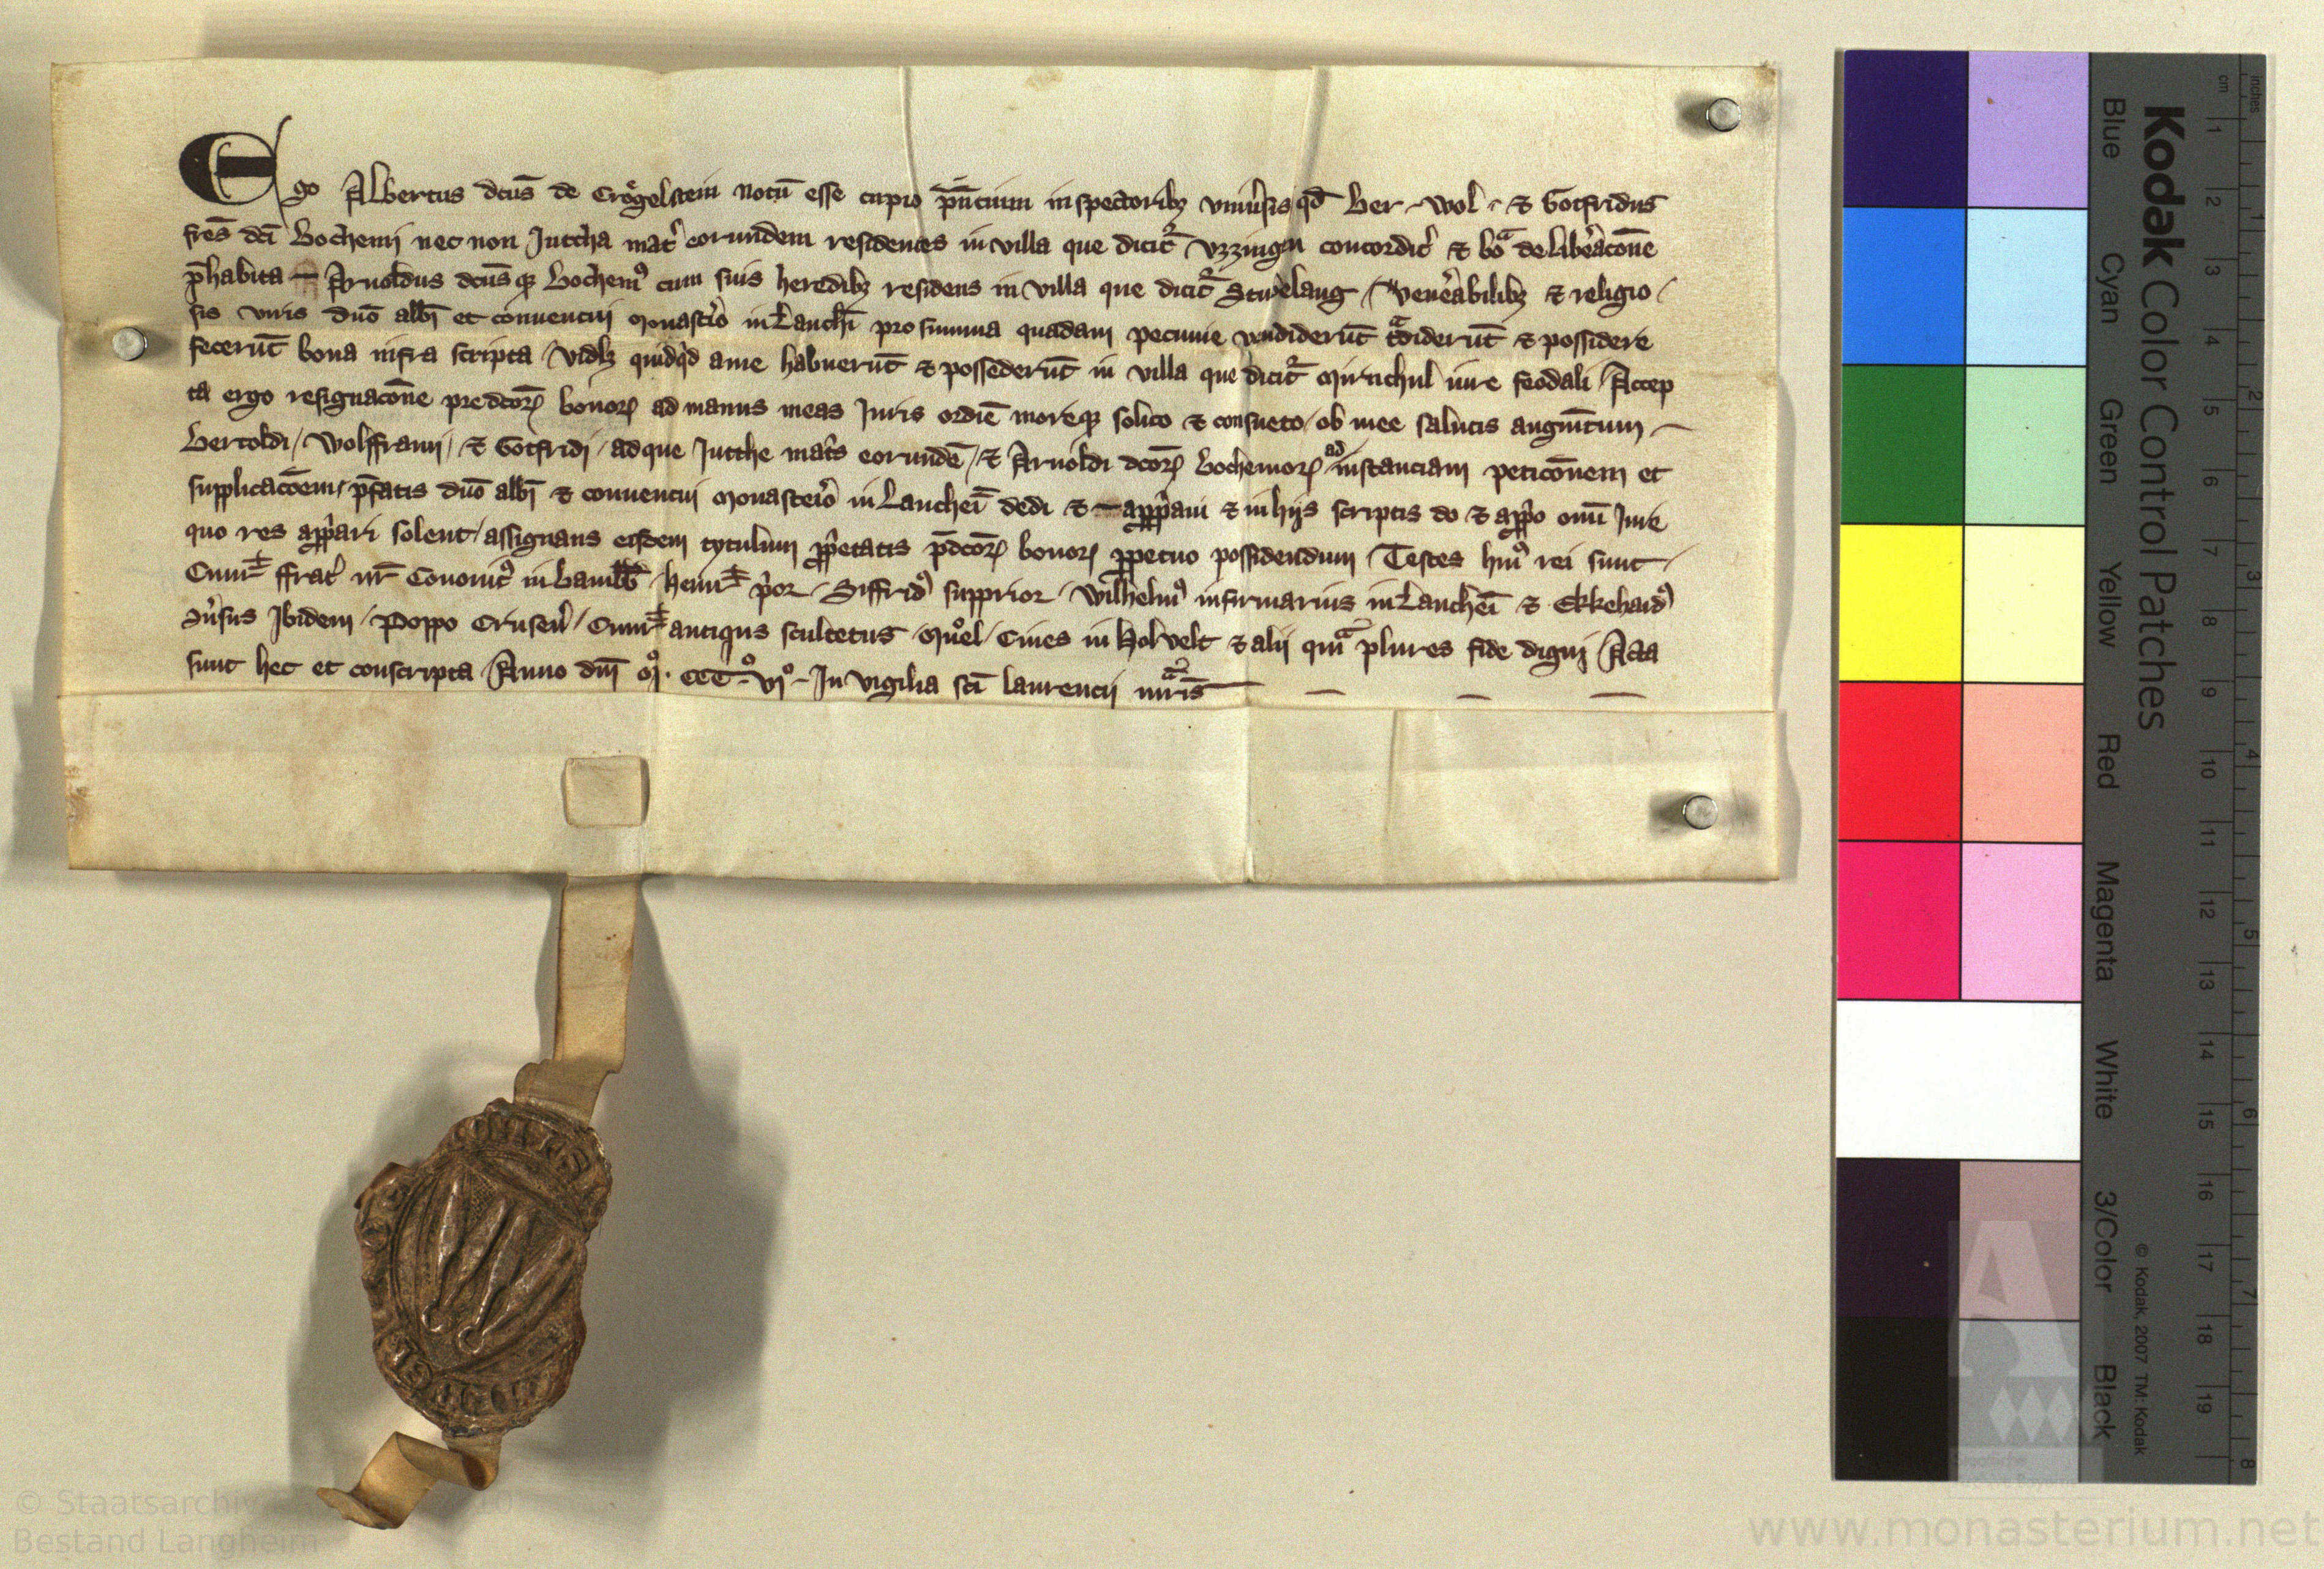 Ego Albertus dc̄us de Crogelstein notū esse cupio p̄ntium inspectoribꝫ vniuˀsis qd̄ Ber – wol – ⁊ Gotfridus
fr̄es dc̄i Bochemi nec non Juttha matˀ eorundem residentes in villa que dicit᷑ vzzingen concorditˀ ⁊ boᷓ delibˀacōne
p̄habita – Arnoldus dc̄usqꝫ Bochemꝰ cum suis heredibꝫ residens in villa que dicit᷑ / venˀabilibꝫ ⁊ religio /
sis viris dn̄o abb̄i et conuentui Monastˀio in Lanch̄ pro summa quadam pecunie vendiderūt tᷓdiderūt ⁊ possidere
fecerūt bona infra scripta / vidlꝫ quidqͥd a me habuerūt ⁊ possederūt in villa que dicit᷑ Mirnchul iure feodali / Accep
ta ergo resignacōne predc̄orꝝ bonorꝝ ad manus meas Juris ordīe moreqꝫ solito ⁊ consueto / ob mee salutis augm̄tum –
Bertoldi / Wolfframi / ⁊ Gotfridi / adque Jutthe matˀs eorundē / ⁊ Arnoldi dc̄orꝝ Bochemorꝝ ad instanciam peticōnem et
supplicacōem / p̄fatis dn̄o abb̄i ⁊ conuentui Monasterˀo in Lanchei᷑ dedi ⁊ – appͥaui ⁊ in hijs scriptis do ⁊ appͥo om̄i Jure
quo res appͥari solent / assignans eisdem tytulum ꝓpͥetatis p̄dc̄orꝝ bonorꝝ ꝑpetuo possidendum / Testes huiꝰ rei sunt /
Cunr̄ ffratˀ nr̄ Canonicꝰ in Bamb̄b / heinr̄ pͥor / Siffridꝰ supprior / Wilhelmꝰ infirmarius in Lanchei᷑ ⁊ Ekkehardꝰ
ibidem / Poppo / Cunr̄ antiqus scultetus / / Ciues in Holvelt ⁊ alij qᷓm plures fide digni / Acta
sunt hec et conscripta Anno dn̄i Mͦ. CCCͦ – vjͦ – In vigilia sc̄i laurencij mr̄is – – – –
Kodak Color Control Patches
Blue Cyan Green Yellow Red Magenta White 3/Color Black
© Kodak, 2007 TM: Kodak
inches 1 2 3 4 5 6 7 8
cm 1 2 3 4 5 6 7 8 9 10 11 12 13 14 15 16 17 18 19
© Staatsarchiv
Bestand Langheim
www.monasterium.net